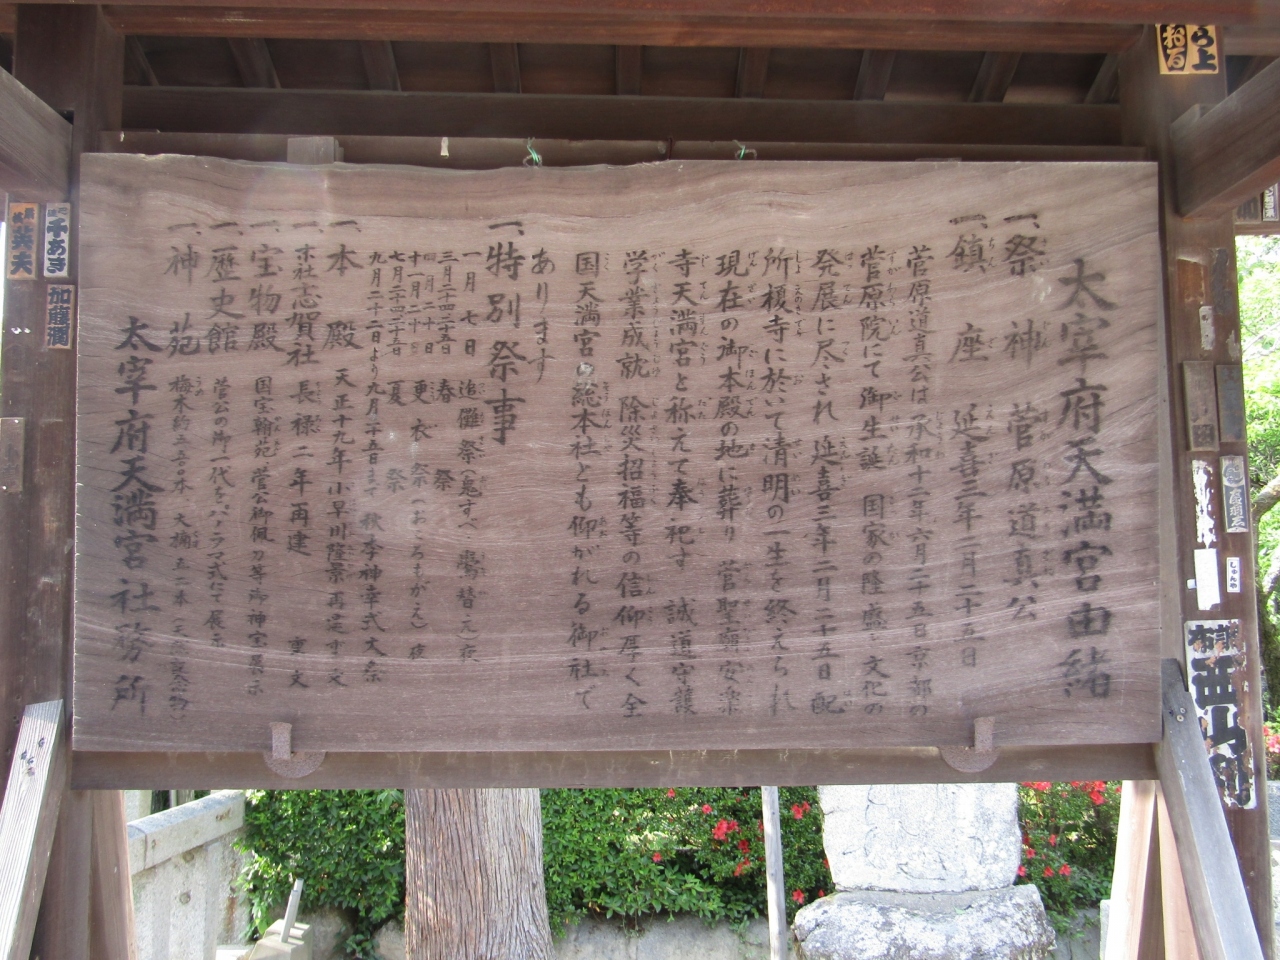 太宰府天満宮由緒
一、祭神 菅原道真公
一、鎮座 延喜三年二月二十五日
菅原道真公は承和十二年六月二十五日京都の
菅原院にて御生誕 国家の隆盛と文化の
発展に尽され 延喜三年二月二十五日 配
所榎寺に於いて清明の一生を終えられ
現在の御本殿の地に葬り 菅聖廟安楽
寺天満宮と称えて奉祀す 誠道守護
学業成就 除災招福等の信仰厚く全
国天満宮の総本社とも仰がれる御社で
あります
一、特別祭事
一月七日 追儺祭(鬼すべ、鷽替え)夜
三月二十四二十五日 春祭
四月二十日 更衣祭(おころもがえ)夜
十一月二十日
七月二十四二十五日 夏祭
九月二十二日より九月二十五日まで 秋季神幸式大祭
一、本殿 天正十九年小早川隆景再建 重文
一、末社志賀社 長禄二年再建 重文
一、宝物殿 国宝翰苑、菅公御佩刀等御神宝展示
一、歴史館 菅公の御一代をパノラマ式にて展示
一、神苑 梅木約五〇〇〇本 大樟五一本(天然記念物)
太宰府天満宮社務所
加藤
西山
しゅんや